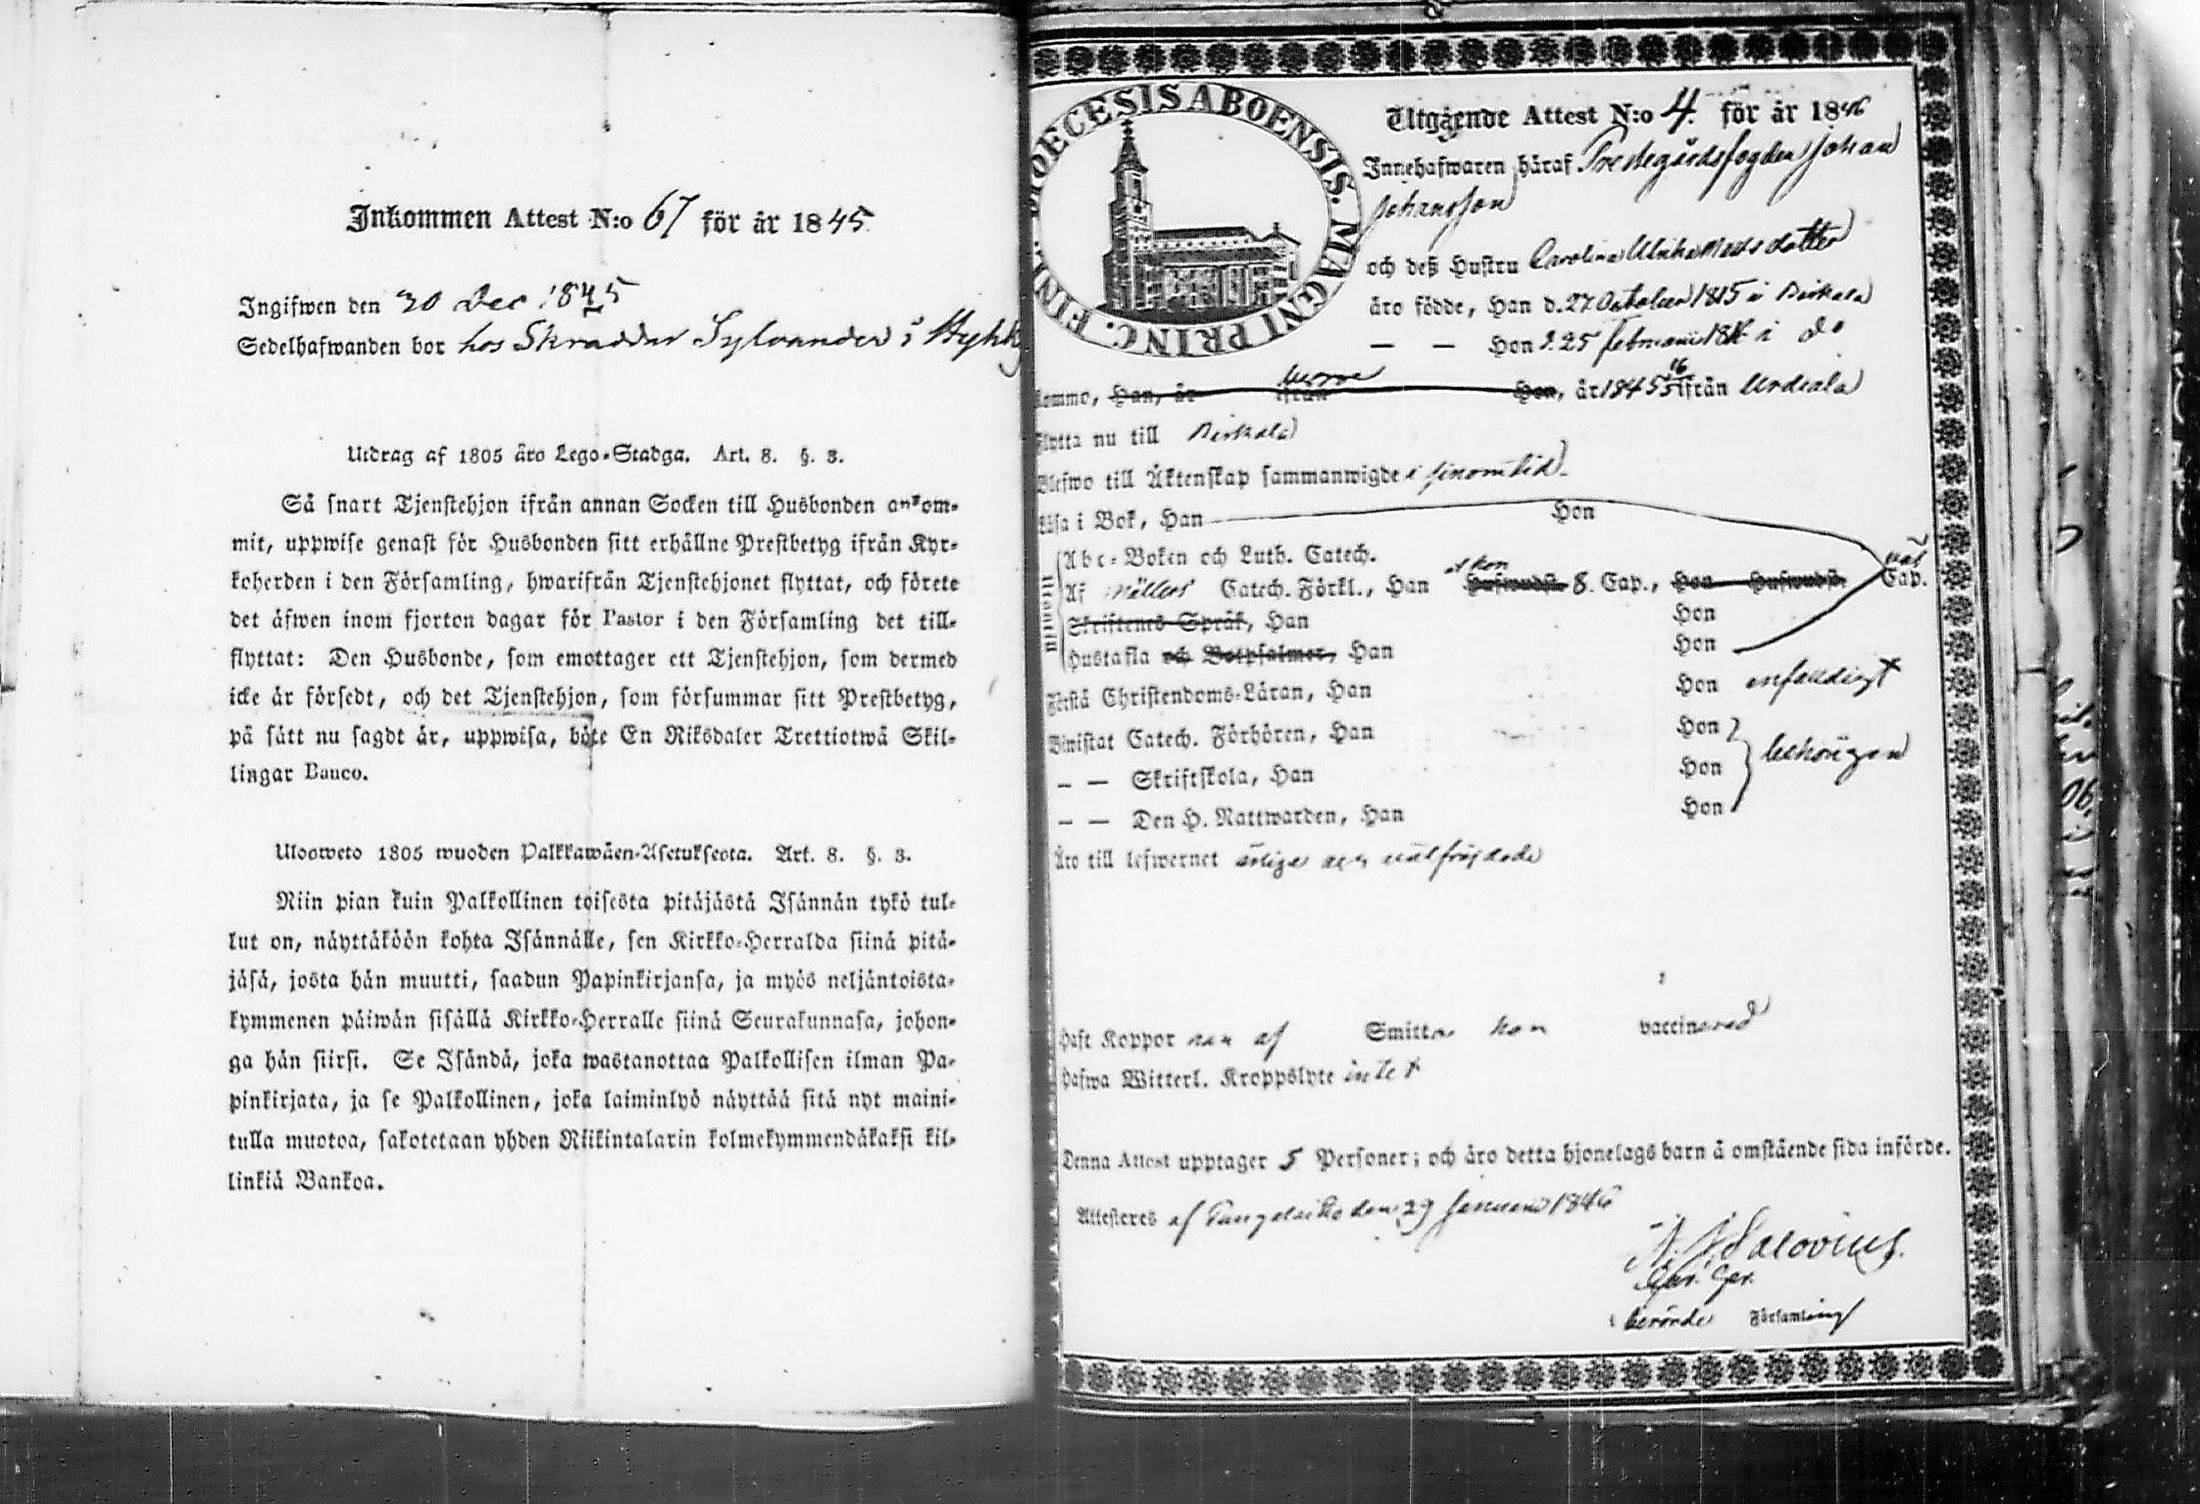 Inkommen Attest N:o 67 för år 1845.
Ingifwen den 30 Dec 1845
Sedelhafwanden bor hos Skraddar Sylvander i
Utdrag af 1805 åro Lego-Stadga. Art. 8. §. 3.
Så snart Tjenstehjon ifrån annan Socken till Husbonden ankom-
mit, uppwise genast för Husbonden sitt erhållne Prestbetyg ifrån Kyr-
koherden i den Församling, hwarifrån Tjenstehjonet flyttat, och förete
det åfwen inom fjorton dagar för Pastor i den Församling det till-
flyttat: Den Husbonde, som emottager ett Tjenstehjon, som dermed
icke är försedt, och det Tjenstehjon, som försummar sitt Prestbetyg,
på sått nu sagdt är, uppwisa, böte En Riksdaler Trettiotwå Skil-
lingar Banco.
Ulosweto 1805 wuoden Palkkawäen-Asetuksesta. Art. 8. §. 3.
Niin pian kuin Palkollinen toisesta pitäjästä Isännän tykö tul-
lut on, näyttäköön kohta Isännälle, sen Kirkko-Herralda siinä pitä-
jäsä, josta hän muutti, saadun Papinkirjansa, ja myös neljäntoista-
kymmenen päiwän sisällä Kirkko-Herralle siinä Seurakunnasa, johon-
ga hän siirsi. Se Isändä, joka wastanottaa Palkollisen ilman Pa-
pinkirjata, ja se Palkollinen, joka laiminlyö näyttää sitä nyt maini-
tulla muotoa, sakotetaan yhden Riikintalarin kolmekymmendäkaksi kil-
linkiä Bankoa.
DIOECESIS ABOENSIS. MAGNI PRINC. FINL.
Utgående Attest N:o 4. för år 1846
Innehafwaren häraf Prestegårdsfogden Johan
Johansson
och deß Hustru Carolina Ulrika Matsdotter
äro födde, Han d. 27 October 1815 i Birkala
— — Hon d. 25 februarii 18 i do
Kommo, Han, år ifrån Hon, år 1845 ifrån Urdiala
Flytta nu till Birkala
Blefwo till Äktenskap sammanwigde i sinom tid.
Läsa i Bok, Han Hon
Utantill
Abc-Boken och Luth. Catech. väl
Af Möllers Catech. Förkl., Han o hon Hufwudst. 8. Cap., Hon Hufwudst. Cap.
Skriftenes Språk, Han Hon
Hustafla och Botpsalmer, Han Hon
Förstå Christendoms-Läran, Han Hon enfaldigt
Bewistat Catech. Förhören, Han Hon
— — Skriftskola, Han Hon behörigen
— — Den H. Nattwarden, Han Hon
Äro till lefwernet ärliga och välfräjdade
Haft Koppor han af Smitta hon vaccinerad
Hafwa Witterl. Kroppslyte intet
Denna Attest upptager 5 Personer; och äro detta hjonelags barn å omstående sida införde.
Attesteres af Tungelniko den 29 Januarii 1846
Salovius.
i berörde Församling